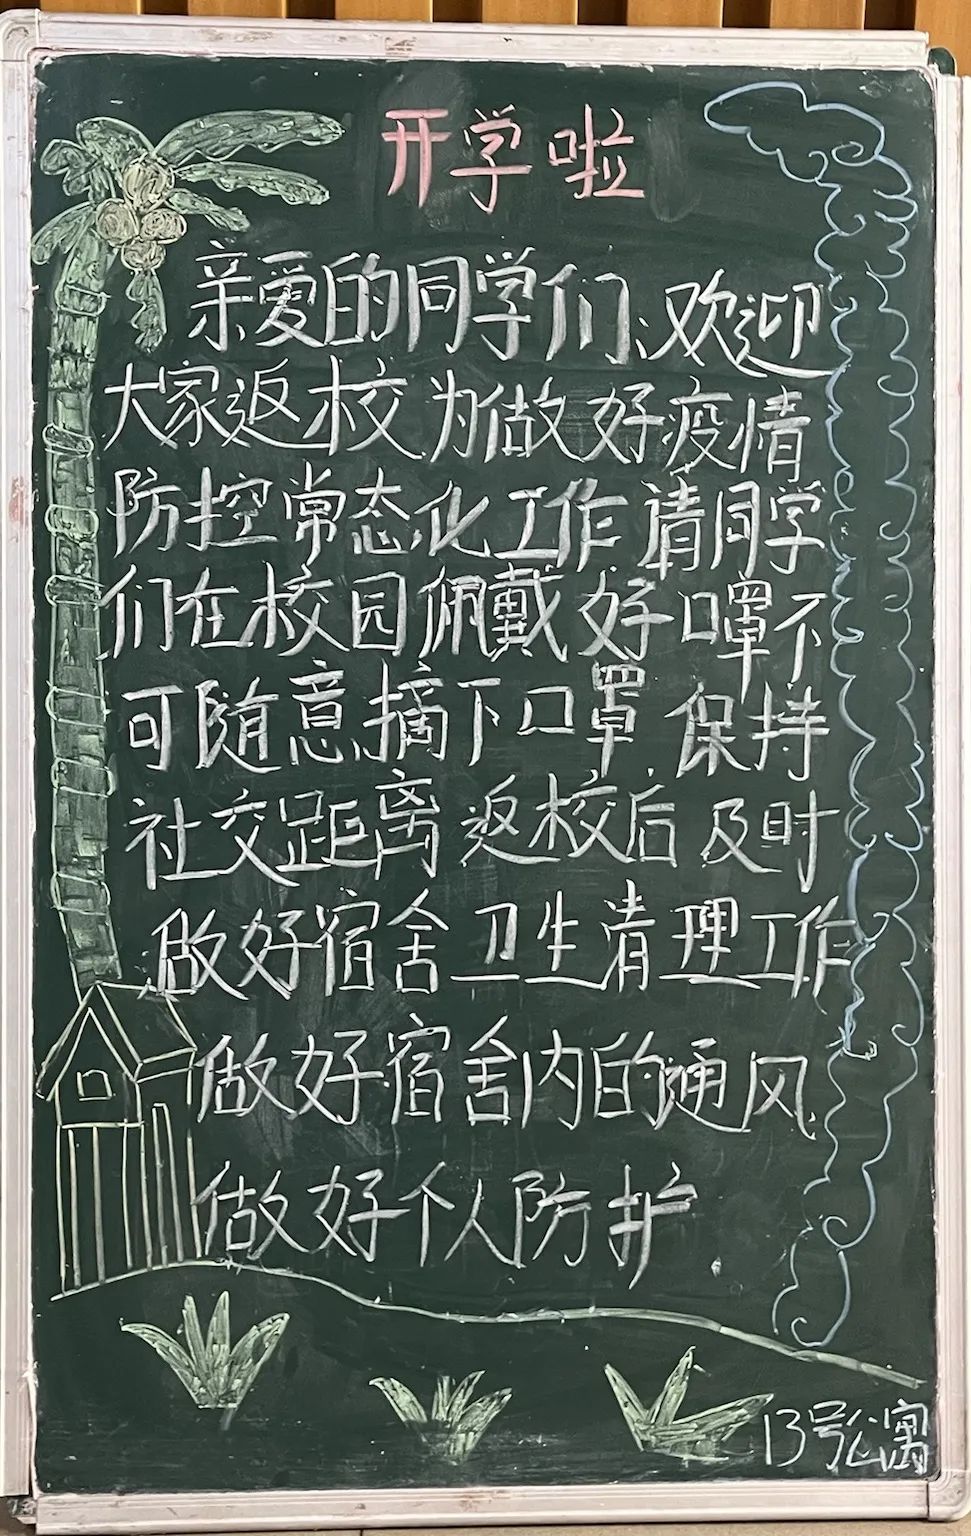 开学啦
亲爱的同学们、欢迎
大家返校 为做好疫情
防控常态化工作 请同学
们在校园佩戴好口罩不
可随意摘下口罩 保持
社交距离 返校后 及时
做好宿舍卫生清理工作
做好宿舍内的通风
做好个人防护.
13号公寓